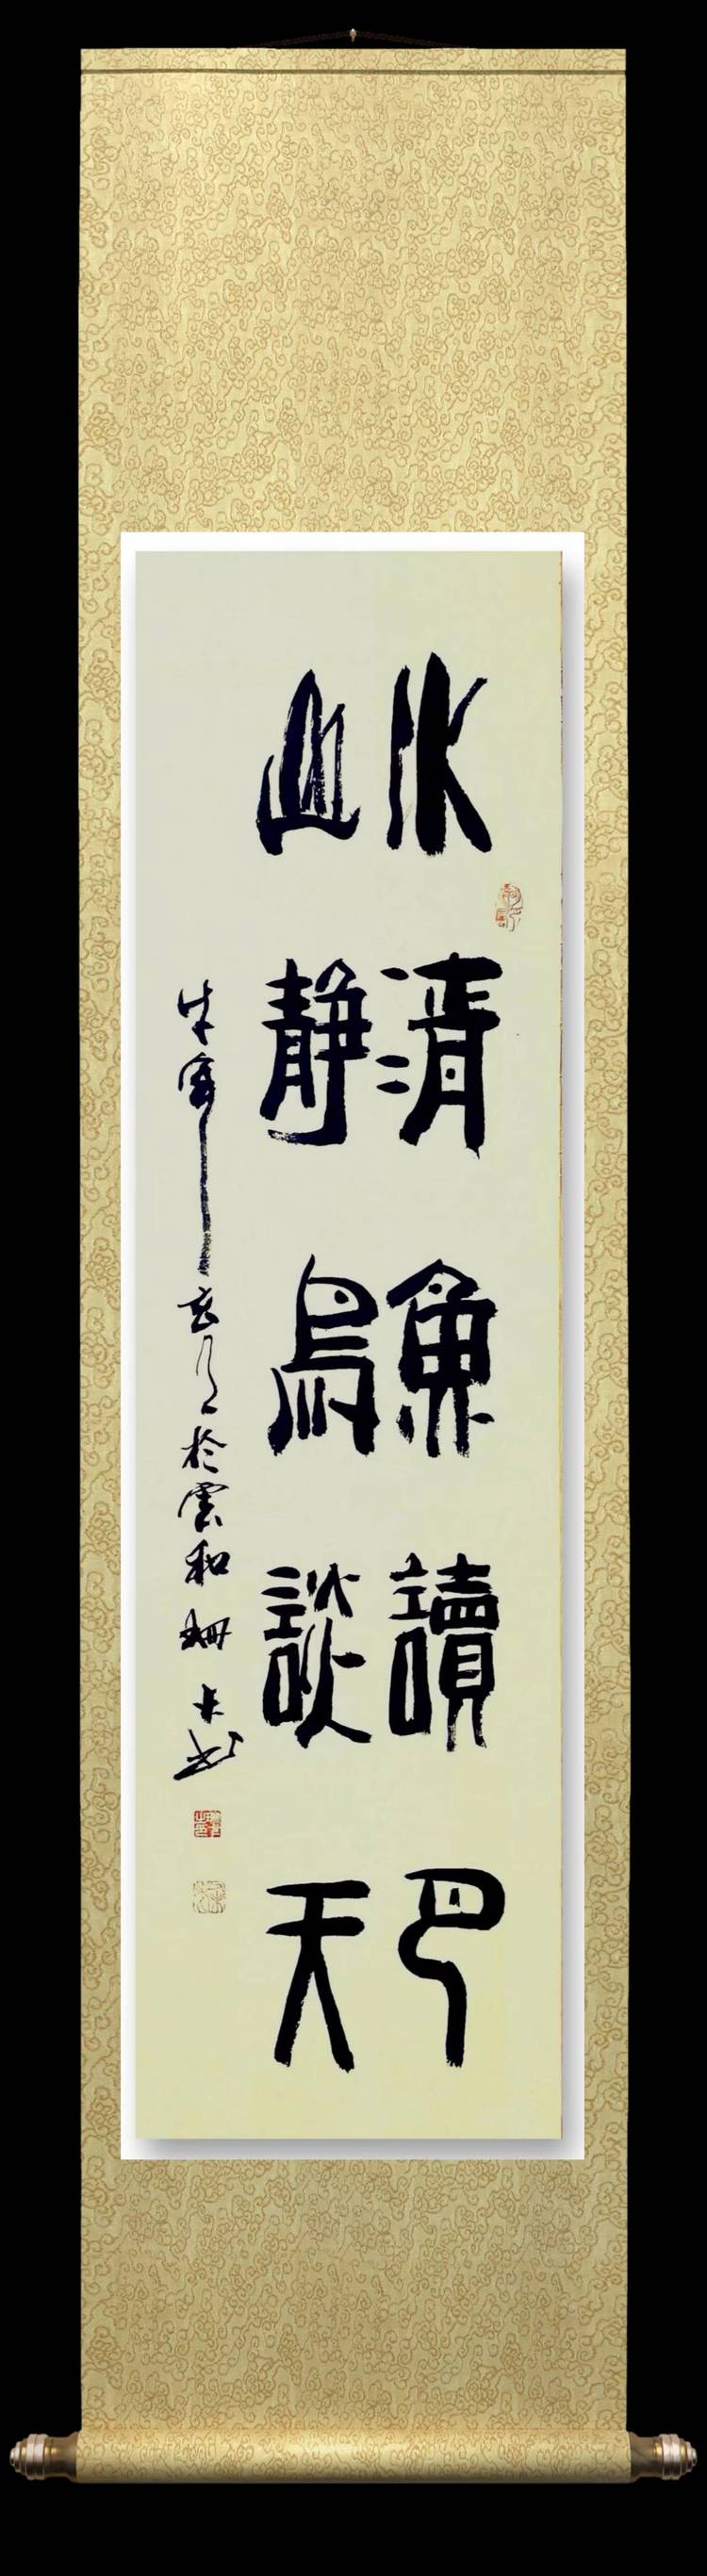 水清魚讀月
山靜鳥談天
於雲和